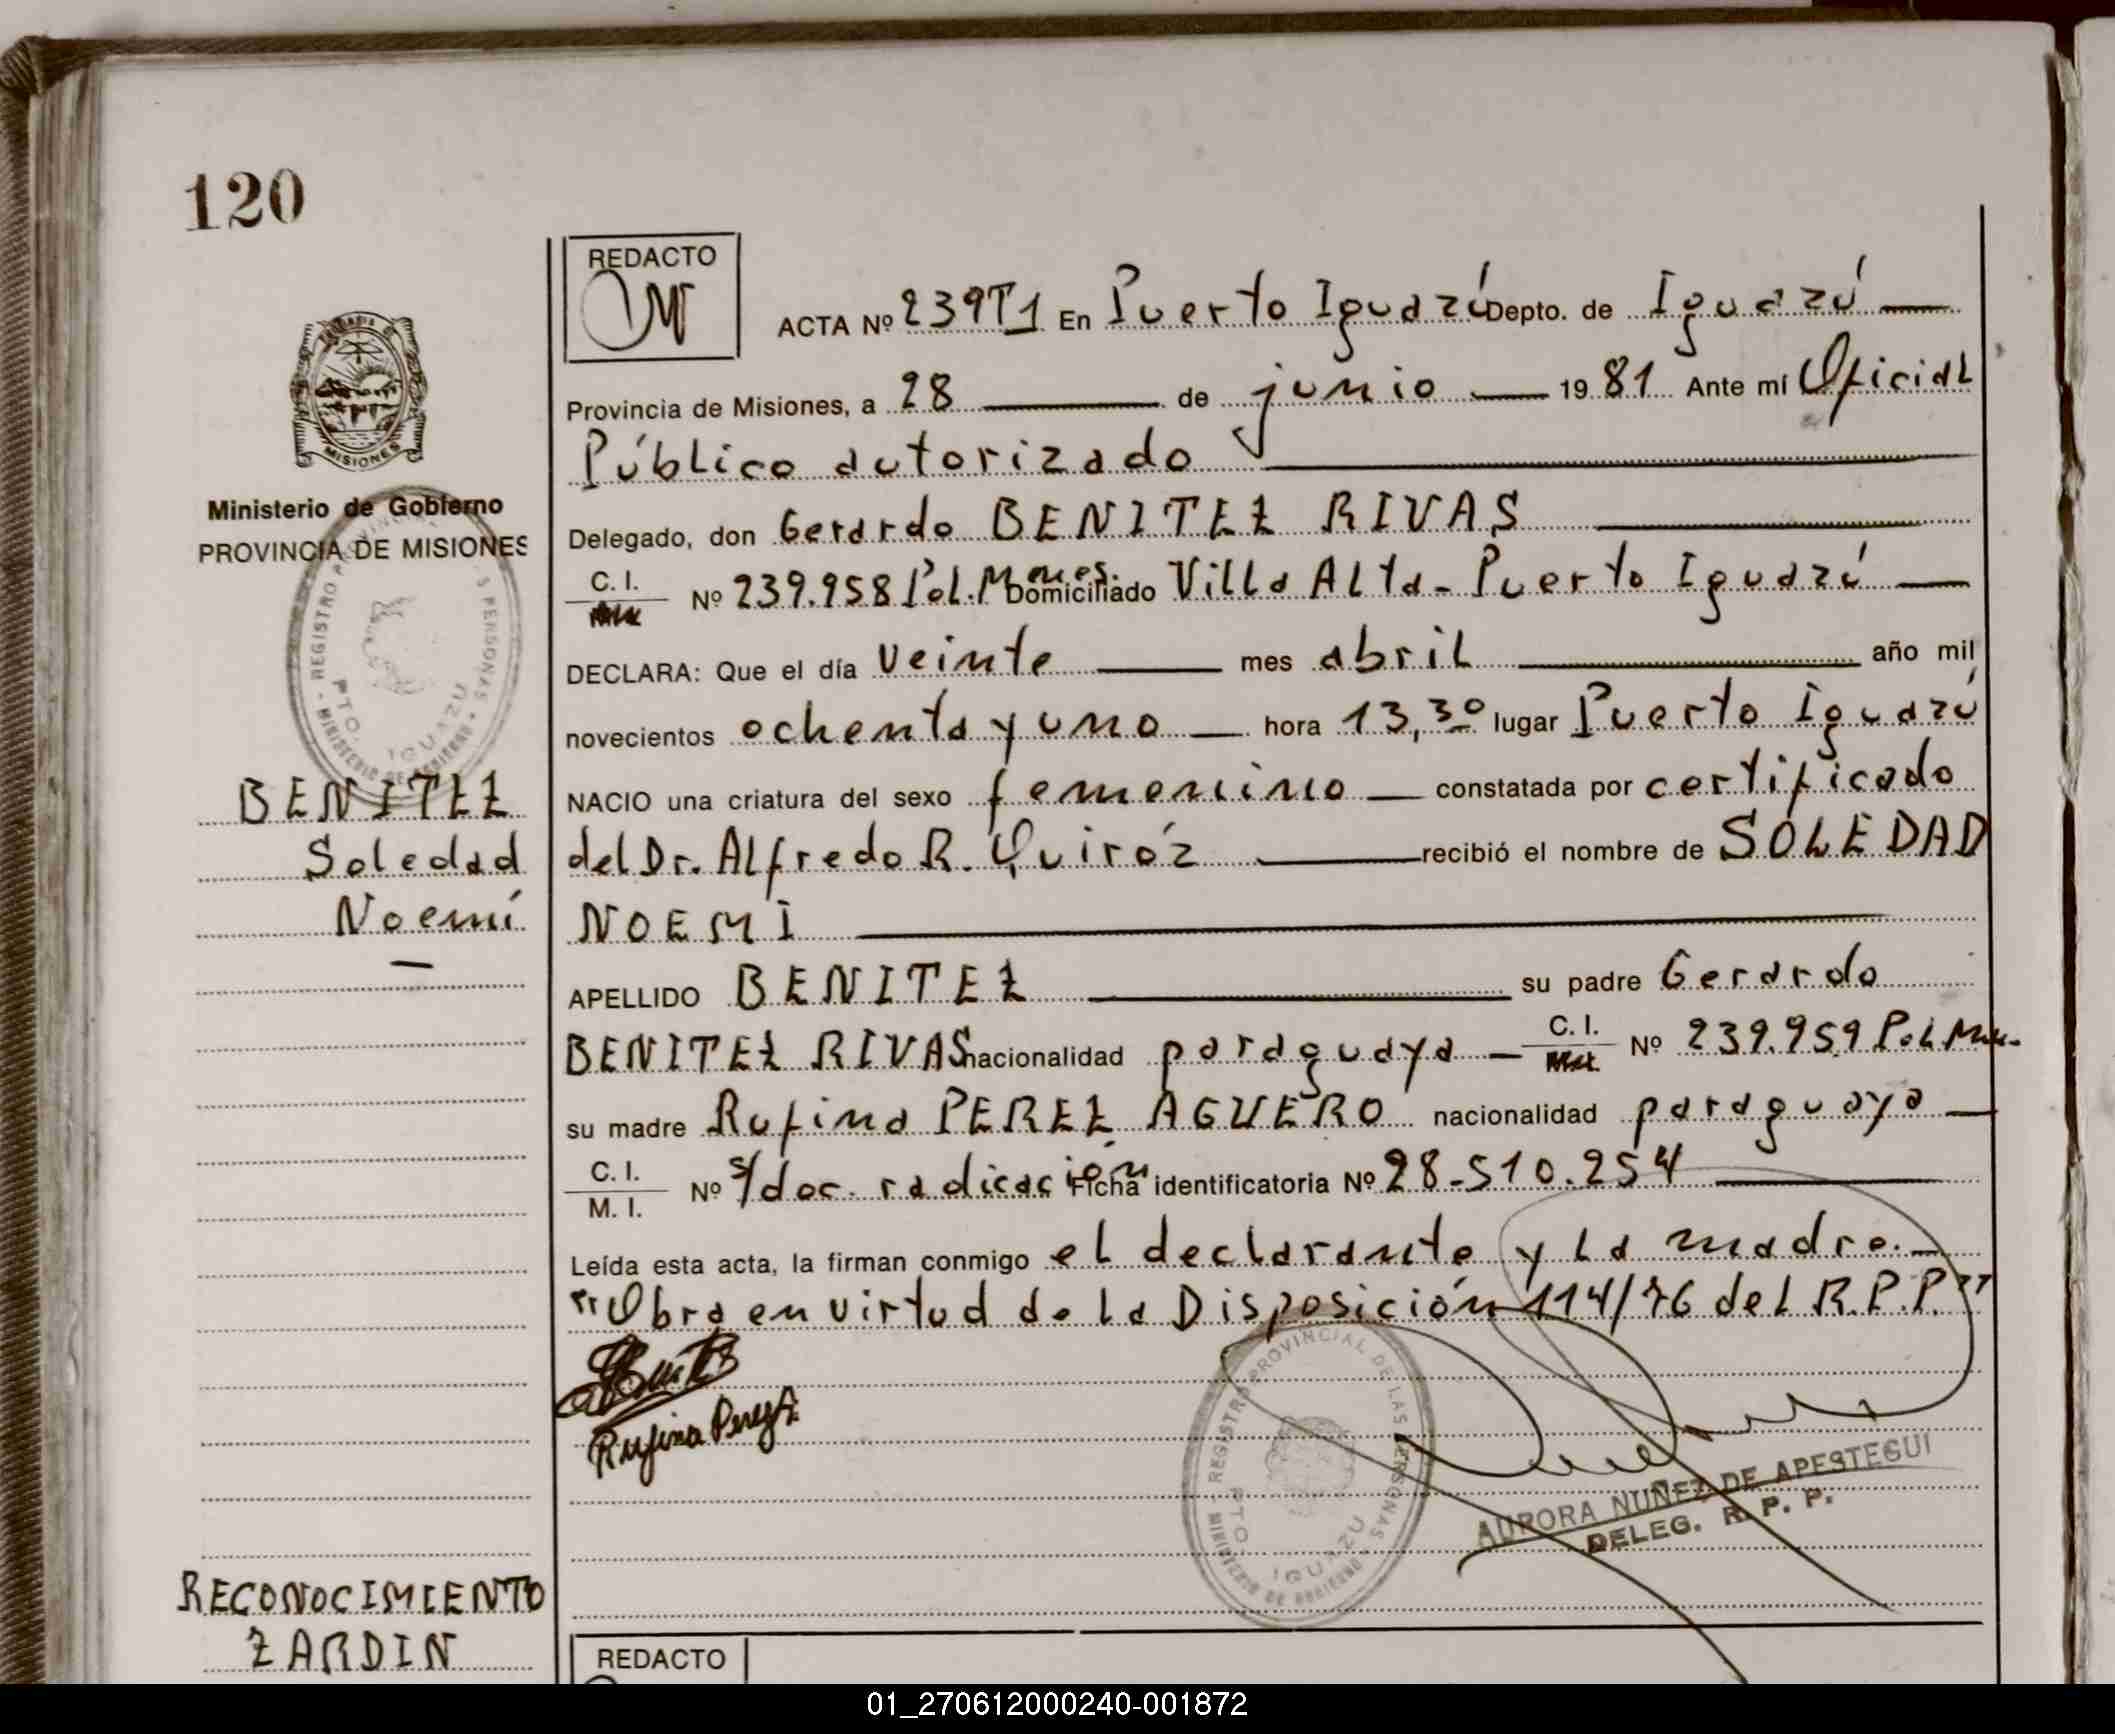 120
REDACTO
ACTA Nº 239T1 En Puerto Iguazú Depto. de Iguazú
Provincia de Misiones, a 28 de junio 1981 Ante mí Oficial
Público autorizado
MISIONES
Ministerio de Gobierno
PROVINCIA DE MISIONES
Delegado, don Gerardo BENITEZ RIVAS
C. I. Nº 239.958 Pol. Mnes. Domiciliado Villa Alta - Puerto Iguazú
DECLARA: Que el día veinte mes abril año mil
novecientos ochenta y uno hora 13,30 lugar Puerto Iguazú
REGISTRO PROVINCIAL PERSONAS
PTO. IGUAZU
MINISTERIO DE GOBIERNO
BENITEZ
Soledad
Noemí
NACIO una criatura del sexo femenino constatada por certificado
del Dr. Alfredo R. Quiróz recibió el nombre de SOLEDAD
NOEMI
APELLIDO BENITEZ su padre Gerardo
BENITEZ RIVAS nacionalidad paraguaya C. I. Nº 239.959 Pol. Mnes.
su madre Rufina PEREZ AGUERO nacionalidad paraguaya
C. I.
M. I. Nº s/doc. radicación Ficha identificatoria Nº 28-510.254
Leída esta acta, la firman conmigo el declarante y la madre.
"Obra en virtud de la Disposición 114/76 del R.P.P."
Rufina Perez A.
REGISTRO PROVINCIAL DE LAS PERSONAS
PTO. IGUAZU
MINISTERIO DE GOBIERNO
AURORA NUÑEZ DE APESTEGUI
DELEG. R. P. P.
RECONOCIMIENTO
ZARDIN
REDACTO
01_270612000240-001872